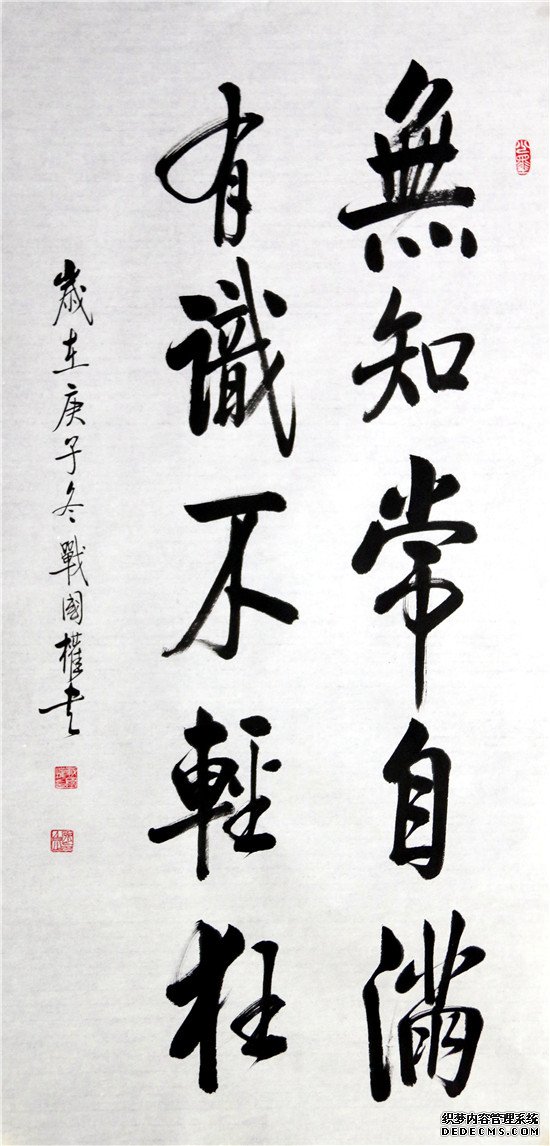 無知常自滿
有識不輕狂
歲在庚子冬戰國權书
织梦内容管理系统
DEDECMS.COM